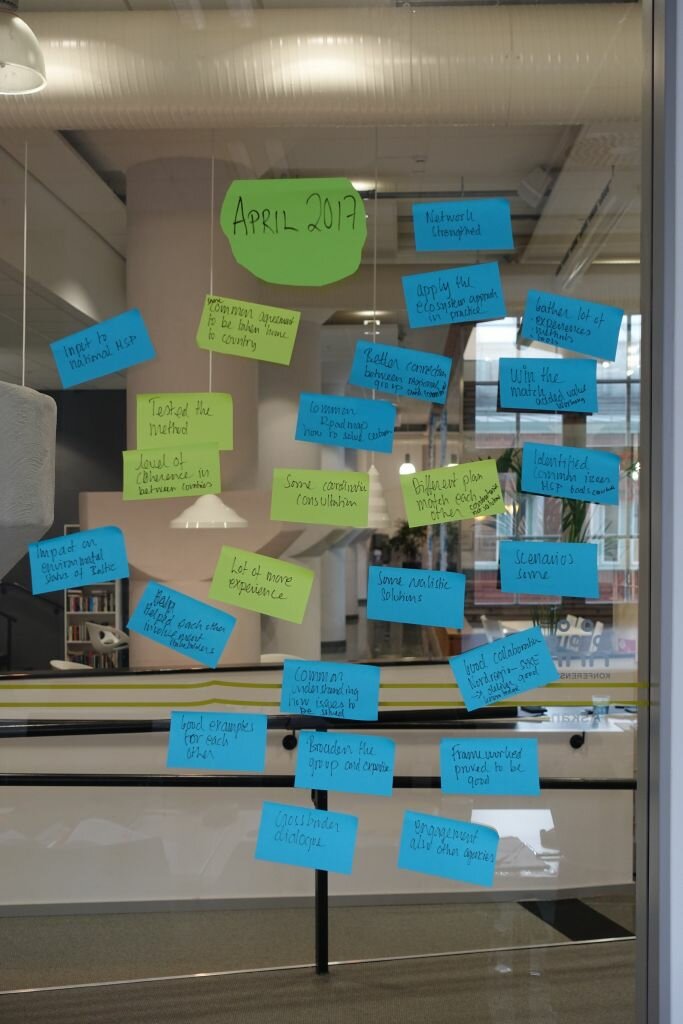 APRIL 2017
Network
strengthed
apply the
ecosystem approach
in practice
Gather lot of
experiences
methods
tools
Input to
national MSP
some
common agreement
to be taken home
to country
Better connection
between
group
Win the
match added value
working
Tested the
method
Common
Roadmap
how to solve
level of
coherence in
between countries
Some coordination
consultation
Different plan
match each
other
Identified
common issues
Impact on
environmental
status of Baltic
Lot of more
experience
Some realistic
solutions
Scenarios
some
Helped each other
involvement
stakeholders
Good collaboration
good
Common
understanding
how issues to
be solved
KONFERENS
Good examples
for each
other
Broaden the
group and expertise
Frameworked
proved to be
good
Crossborder
dialogue
engagement
also other agencies